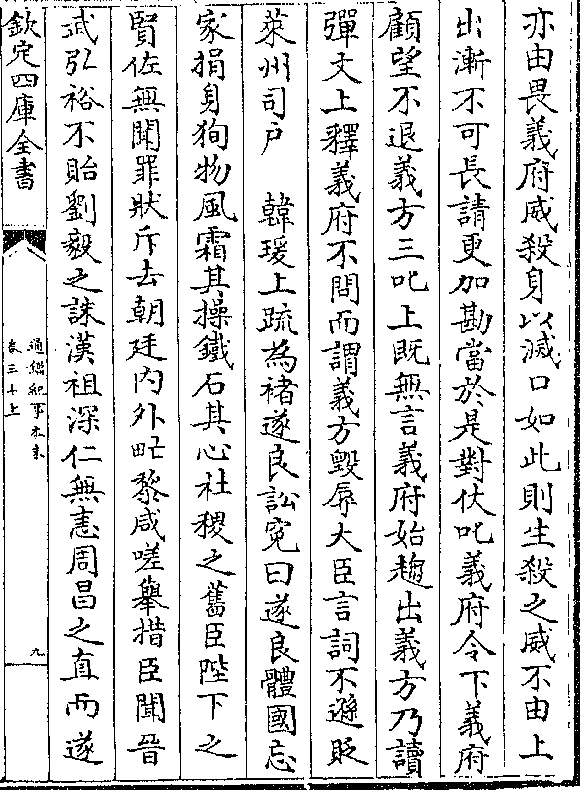 亦由畏義府威殺身以滅口如此則生殺之威不由上
出漸不可長請更加勘當於是對仗叱義府令下義府
顧望不退義方三叱上旣無言義府始趨出義方乃讀
彈文上釋義府不問而謂義方毀辱大臣言詞不遜貶
萊州司户　韓瑗上疏為褚遂良訟寃曰遂良體國忘
家捐身狥物風霜其操鐵石其心社稷之舊臣陛下之
賢佐無聞罪狀斥去朝廷内外甿黎咸嗟舉措臣聞晉
武弘裕不貽劉毅之誅漢祖深仁無恚周昌之直而遂
欽定四庫全書
通鑑紀事本末
卷三十上
九